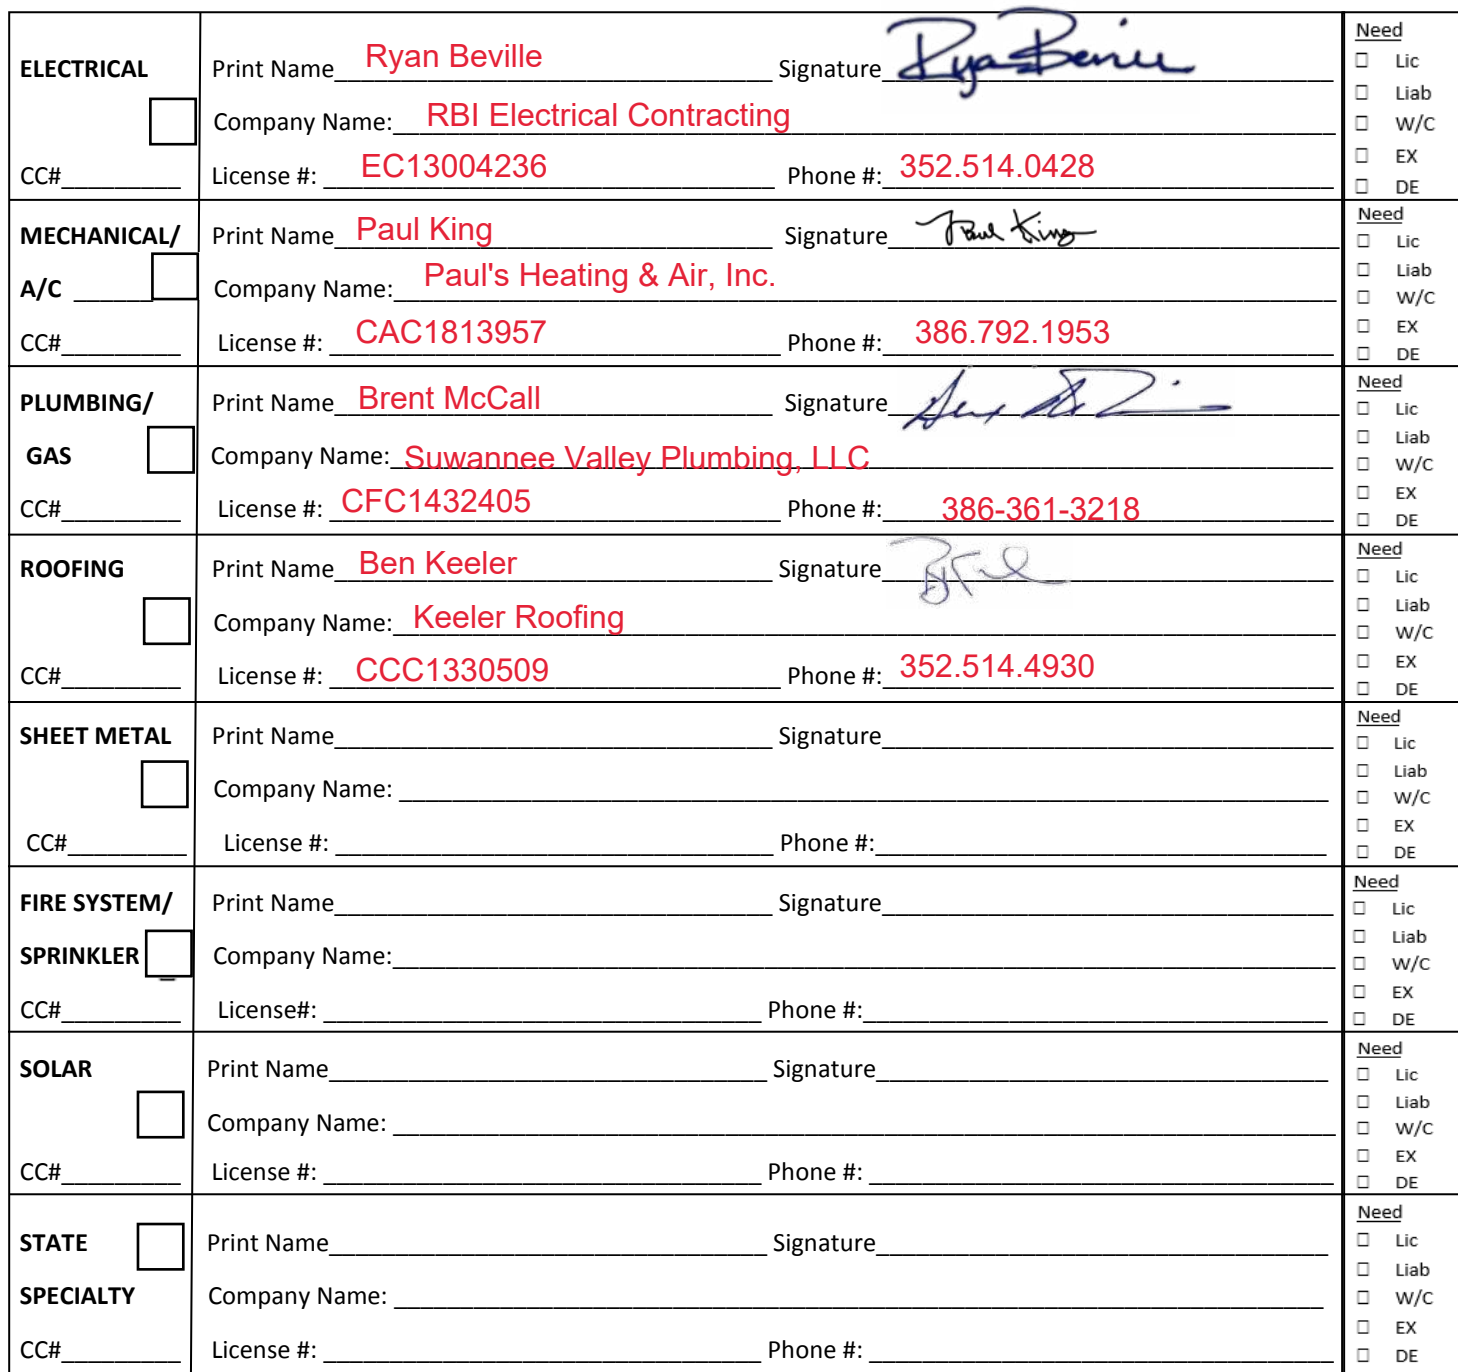 ELECTRICAL Print Name Ryan Beville Signature Ryan Beville
Company Name: RBI Electrical Contracting
CC# License #: EC13004236 Phone #: 352.514.0428
Need
☐ Lic
☐ Liab
☐ W/C
☐ EX
☐ DE
MECHANICAL/ Print Name Paul King Signature Paul King
A/C Company Name: Paul's Heating & Air, Inc.
CC# License #: CAC1813957 Phone #: 386.792.1953
Need
☐ Lic
☐ Liab
☐ W/C
☐ EX
☐ DE
PLUMBING/ Print Name Brent McCall Signature
GAS Company Name: Suwannee Valley Plumbing, LLC
CC# License #: CFC1432405 Phone #: 386-361-3218
Need
☐ Lic
☐ Liab
☐ W/C
☐ EX
☐ DE
ROOFING Print Name Ben Keeler Signature
Company Name: Keeler Roofing
CC# License #: CCC1330509 Phone #: 352.514.4930
Need
☐ Lic
☐ Liab
☐ W/C
☐ EX
☐ DE
SHEET METAL Print Name Signature
Company Name:
CC# License #: Phone #:
Need
☐ Lic
☐ Liab
☐ W/C
☐ EX
☐ DE
FIRE SYSTEM/ Print Name Signature
SPRINKLER Company Name:
CC# License#: Phone #:
Need
☐ Lic
☐ Liab
☐ W/C
☐ EX
☐ DE
SOLAR Print Name Signature
Company Name:
CC# License #: Phone #:
Need
☐ Lic
☐ Liab
☐ W/C
☐ EX
☐ DE
STATE Print Name Signature
SPECIALTY Company Name:
CC# License #: Phone #:
Need
☐ Lic
☐ Liab
☐ W/C
☐ EX
☐ DE